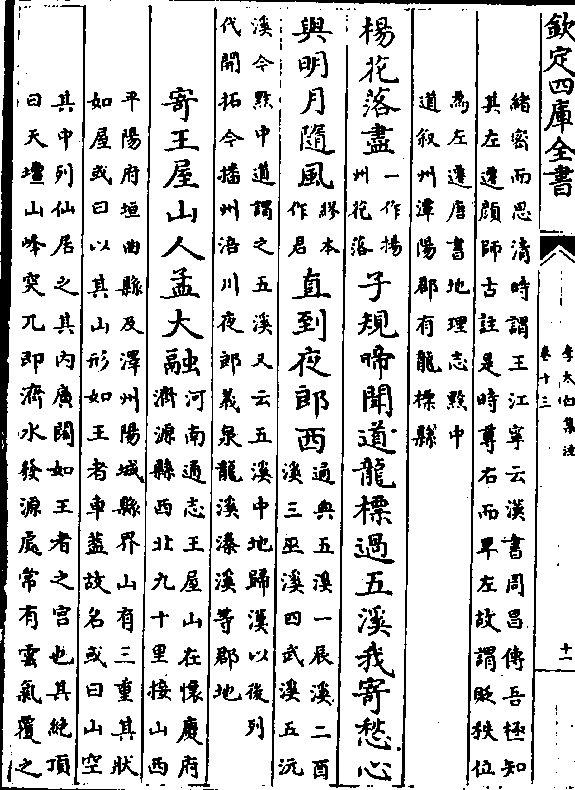 欽定四庫全書
李太白集注
卷十三
十一
緒密而思清時謂王江寧云漢書周昌傳吾極知
其左遷顏師古註是時尊右而卑左故謂貶秩位
為左遷唐書地理志黔中
道叙州潭陽郡有龍標縣
楊花落盡一作揚州花落子規啼聞道龍標過五溪我寄愁心
與明月隨風繆本作君直到夜郎西通典五溪一辰溪二酉溪三巫溪四武溪五沅
溪今黔中道謂之五溪又云五溪中地歸漢以後列
代開拓今播州涪川夜郎義泉龍溪溱溪等郡地
寄王屋山人孟大融河南通志王屋山在懷慶府濟源縣西北九十里接山西
平陽府垣曲縣及澤州陽城縣界山有三重其狀
如屋或曰以其山形如王者車蓋故名或曰山空
其中列仙居之其内廣闊如王者之宫也其絶頂
曰天壇山峰突兀即濟水發源處常有雲氣覆之